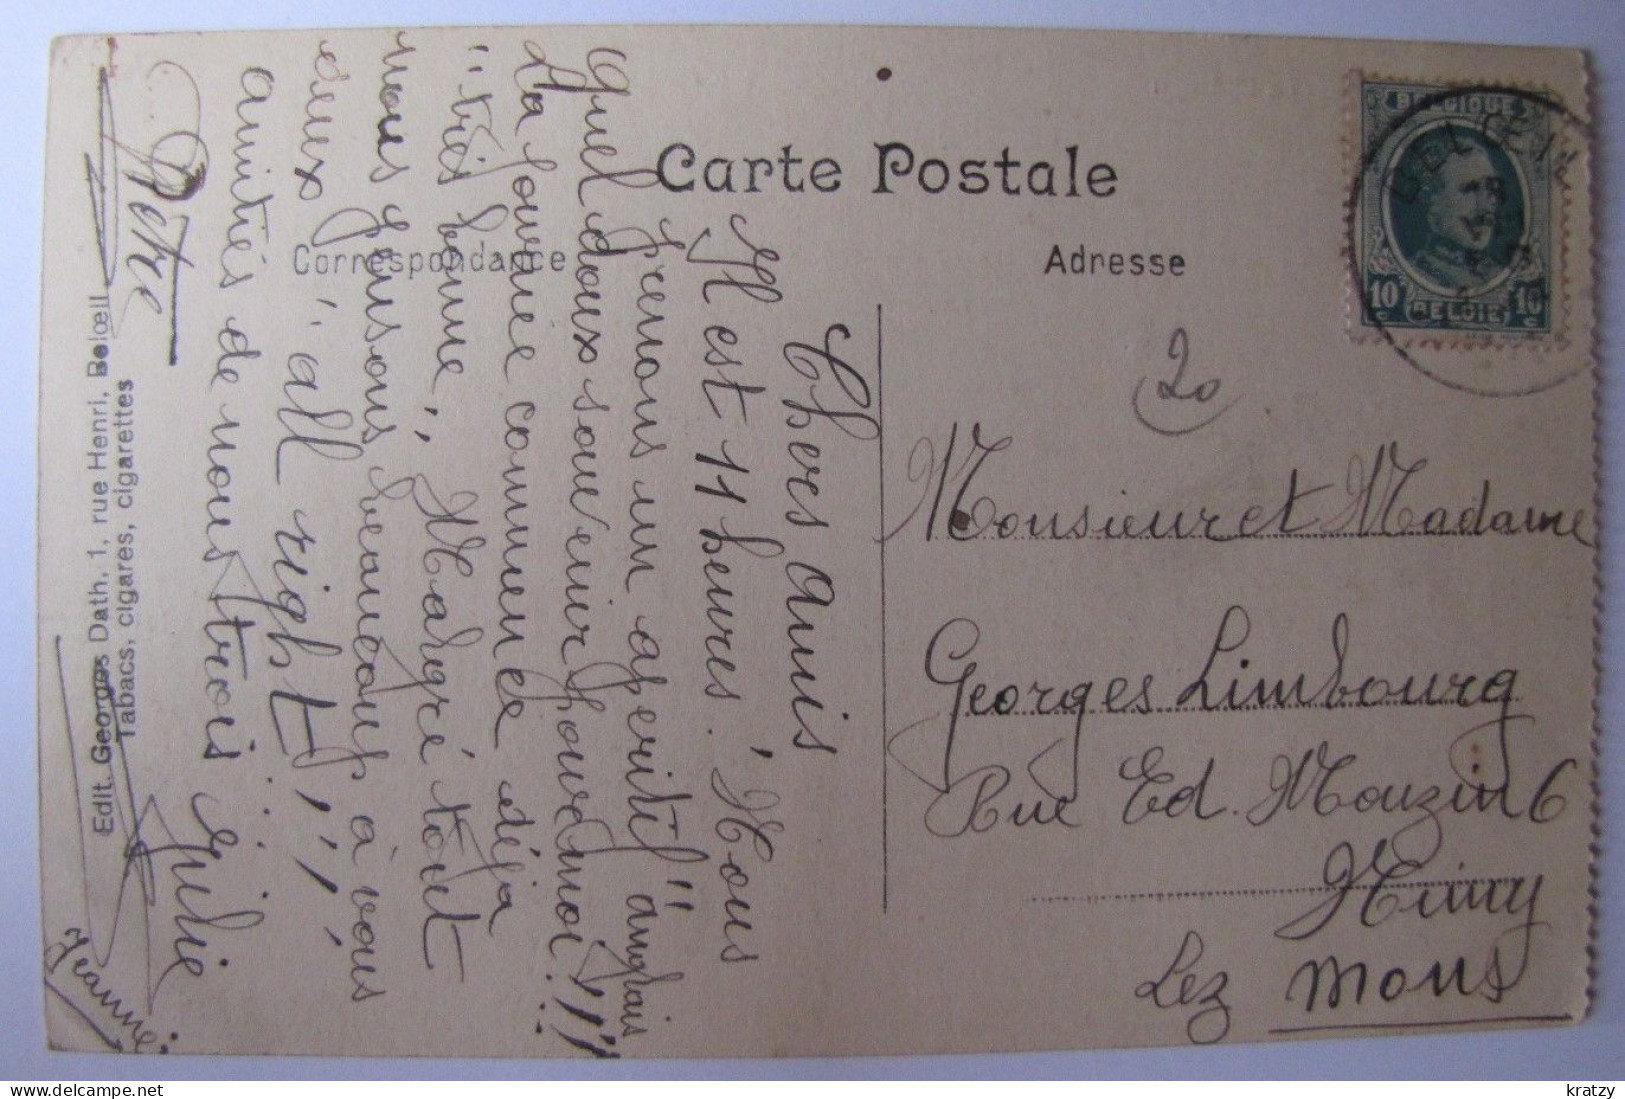 Carte Postale
Correspondance
Adresse
BELGIQUE
10 c 10 c
BELGIE
20
Chers amis
Il est 11 heures. Nous
prenons un aperitif anglais
Quel doux souvenir pour moi!!!
La journée commence déjà
"très bonne", Malgré tout
nous pensons beaucoup à vous
deux "all right!!!
amitiés de nous trois
Julie
Petre
Jeanne
Monsieur et Madame
Georges Limbourg
Rue Ed. Mouzin 6
Nimy
Lez Mons
Edit. Georges Dath, 1, rue Henri, Belœil
Tabacs, cigares, cigarettes
kratzy